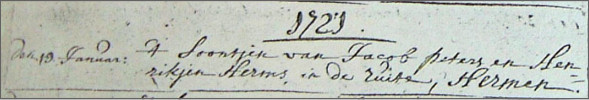 1721.
Den 19 Januar: 't Soontjen van Jacob Peters en Hen=
rikjen Herms, in de Luite, Hermen.